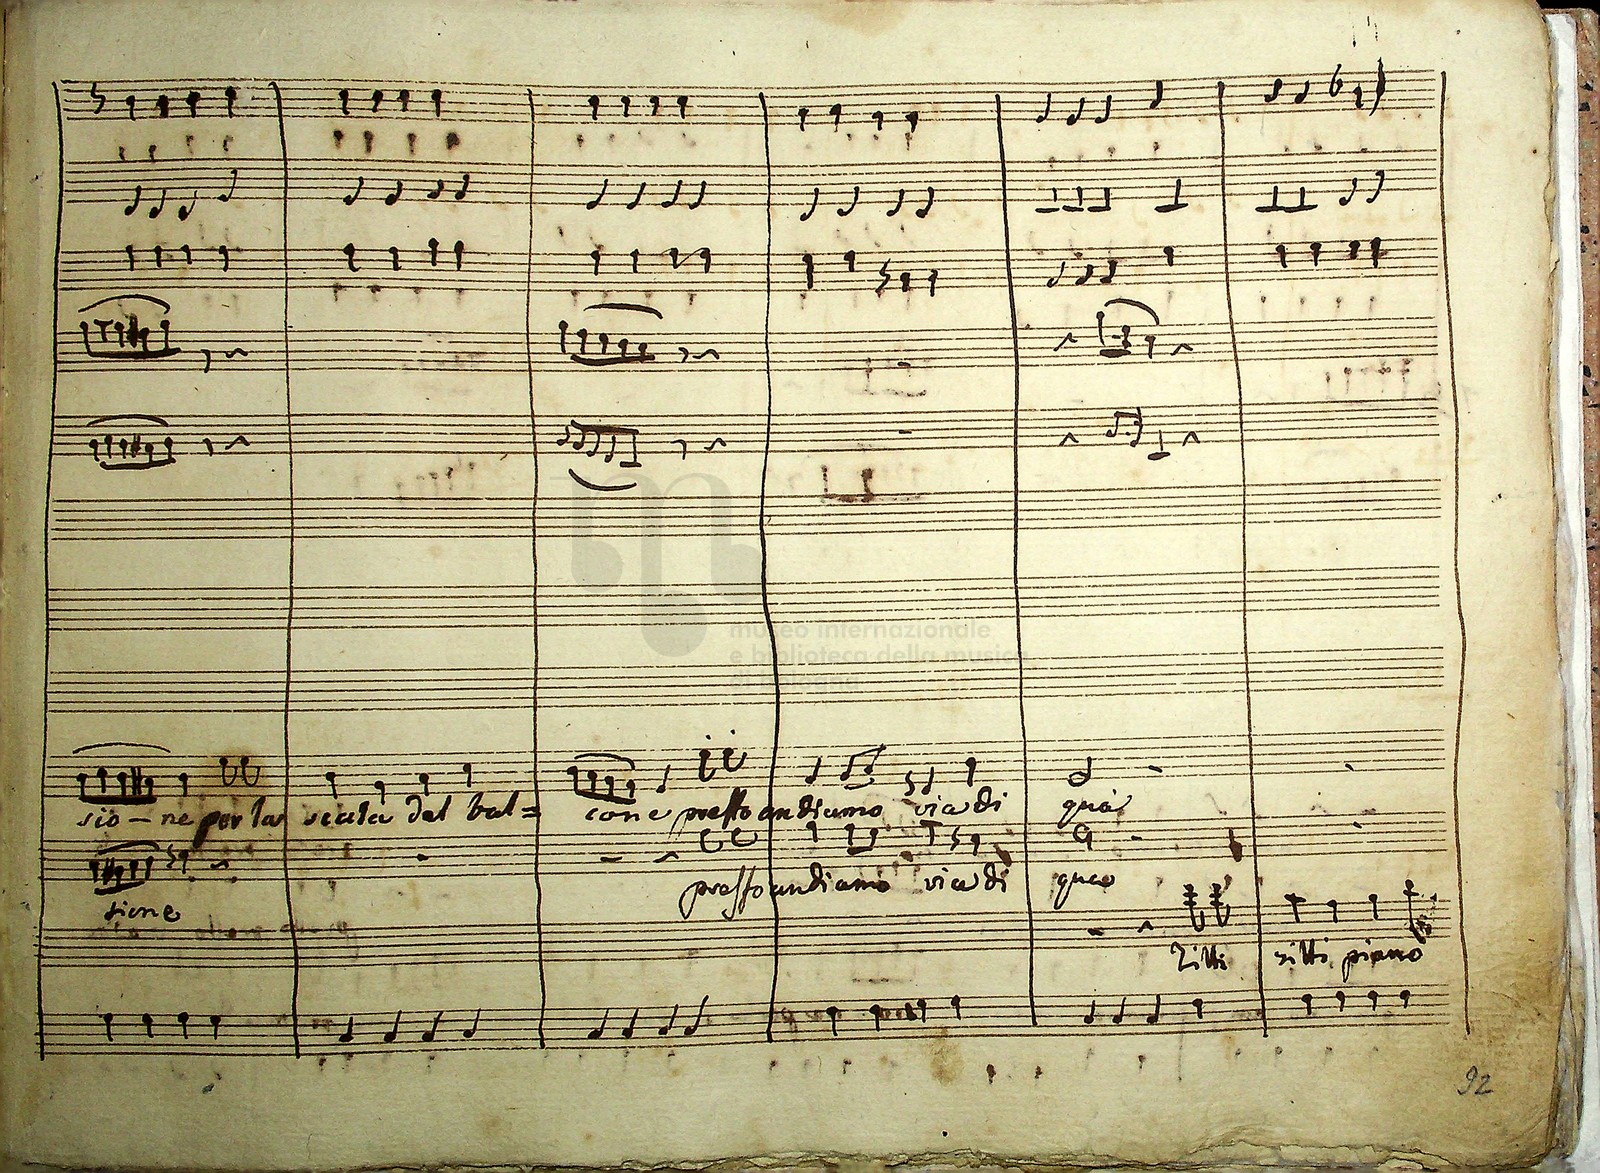 museo internazionale
e biblioteca della musica
di bologna
sio-ne per la scala del bal= cone presto andiamo via di quà
presto andiamo via di qua
sione
Zitti zitti piano
92